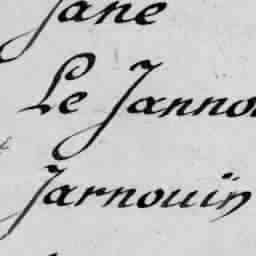 Jane
Le Janno
Jarnouin